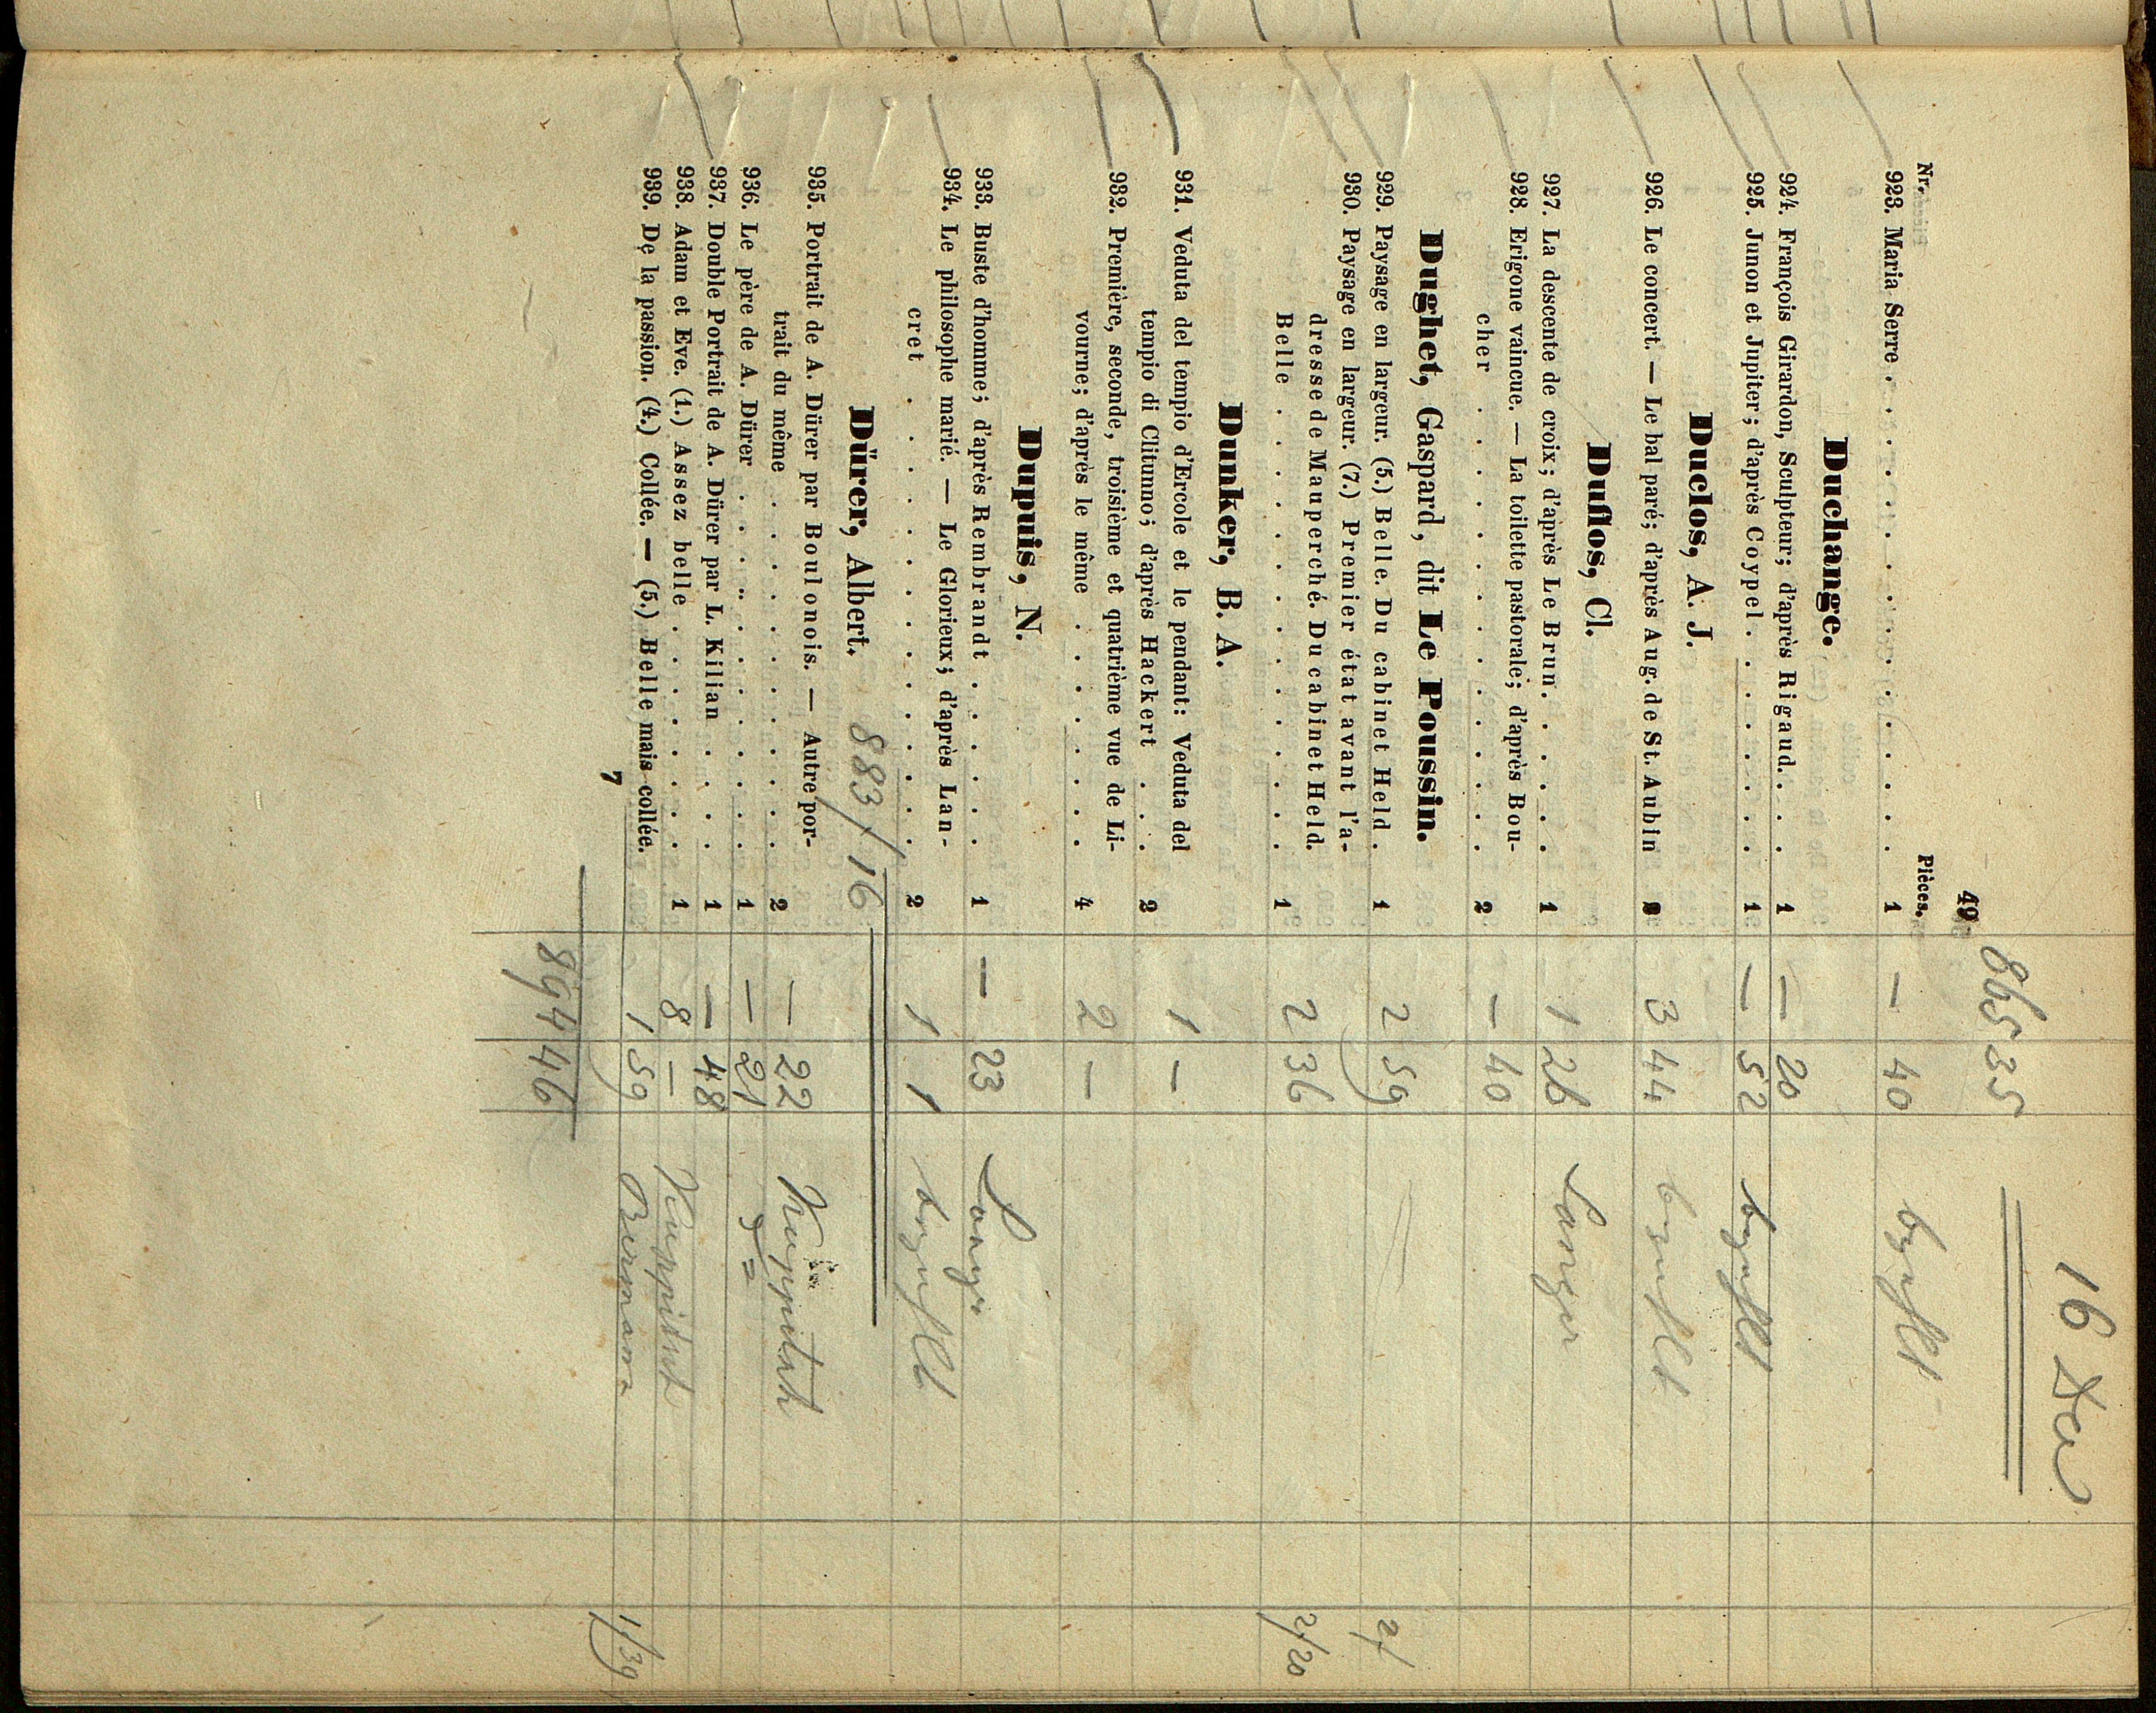 16 Dec
865 35
49
Nr. Pièces.
923. Maria Serre . . . . . . . . . . 1 — 40
Duchange.
924. François Girardon, Sculpteur; d'après Rigaud. . . 1 — 20
925. Junon et Jupiter; d'après Coypel . . . . . . . 1 — 52
Duclos, A. J.
926. Le concert. — Le bal paré; d'après Aug. de St. Aubin 2 3 44
Duflos, Cl.
927. La descente de croix; d'après Le Brun. . . . . . 1 1 26 Langer
928. Erigone vaincue. — La toilette pastorale; d'après Bou-
cher . . . . . . . . . . . . . 2 — 40
Dughet, Gaspard, dit Le Poussin.
929. Paysage en largeur. (5.) Belle. Du cabinet Held . 1 2 59 2/
930. Paysage en largeur. (7.) Premier état avant l'a-
dresse de Mauperché. Du cabinet Held.
Belle . . . . . . . . . . . . . 1 2 36 2/20
Dunker, B. A.
931. Veduta del tempio d'Ercole et le pendant: Veduta del
tempio di Clitunno; d'après Hackert . . . 2 1 —
932. Première, seconde, troisième et quatrième vue de Li-
vourne; d'après le même . . . . . . . 4 2 —
Dupuis, N.
933. Buste d'homme; d'après Rembrandt . . . . . . 1 — 23
934. Le philosophe marié. — Le Glorieux; d'après Lan-
cret . . . . . . . . . . . . . 2 1 1
Dürer, Albert. 883/16
935. Portrait de A. Dürer par Boulonois. — Autre por-
trait du même . . . . . . . . . . . 2 — 22
936. Le père de A. Dürer . . . „ . . . . . . . 1 — 21
937. Double Portrait de A. Dürer par L. Kilian . . . . 1 — 48
938. Adam et Eve. (1.) Assez belle . . . . . . . . 1 8 —
939. De la passion. (4.) Collée. — (5.) Belle mais collée. 1 59 1/39
7
894 46